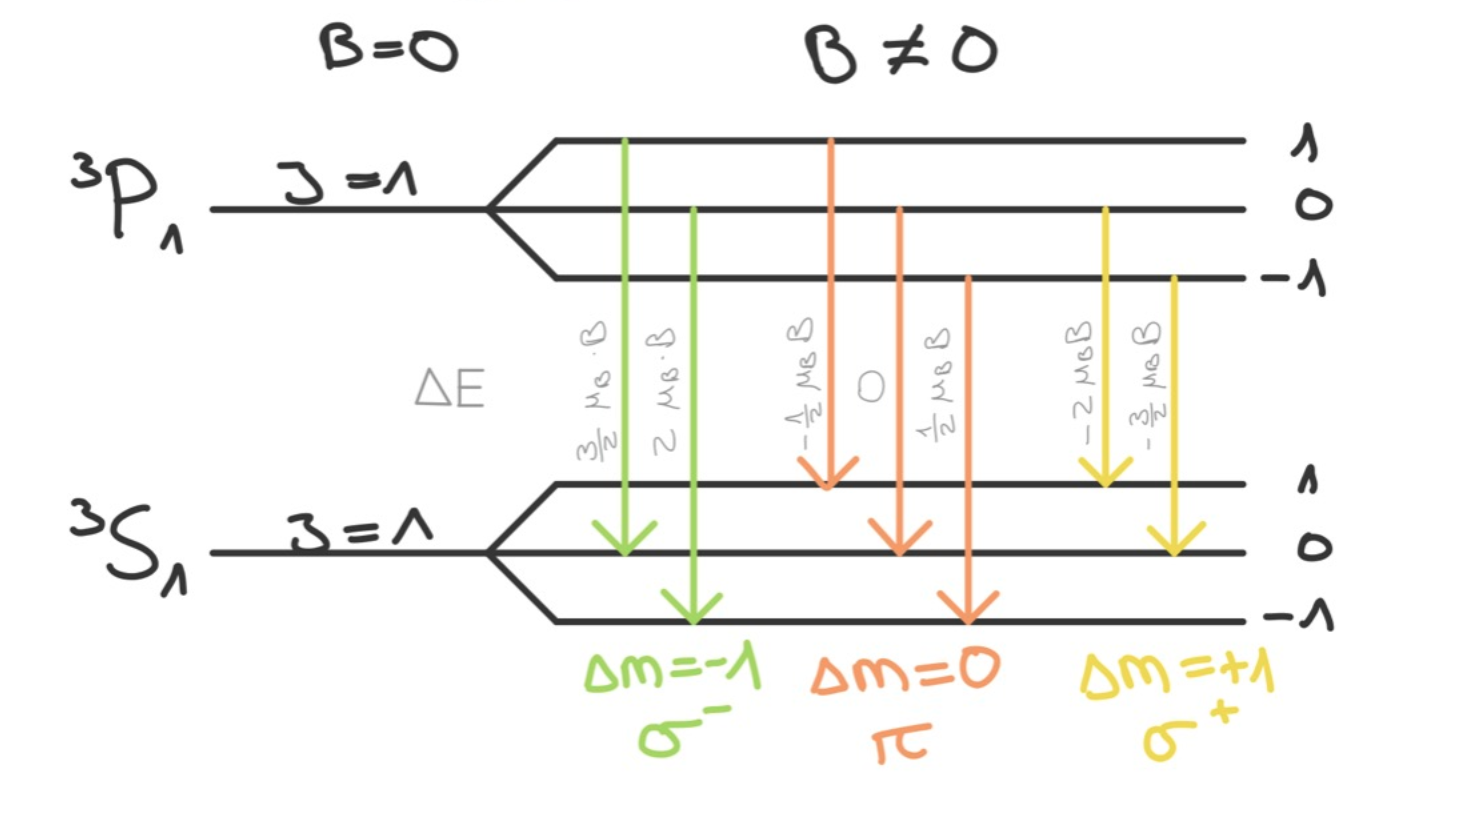 B=0
B ≠ 0
³P₁
J=1
1
0
-1
ΔE
3/2 μB·B
2 μB·B
-1/2 μB B
0
1/2 μB B
-2 μB B
-3/2 μB B
³S₁
J=1
1
0
-1
Δm=-1
Δm=0
Δm=+1
σ⁻
π
σ⁺